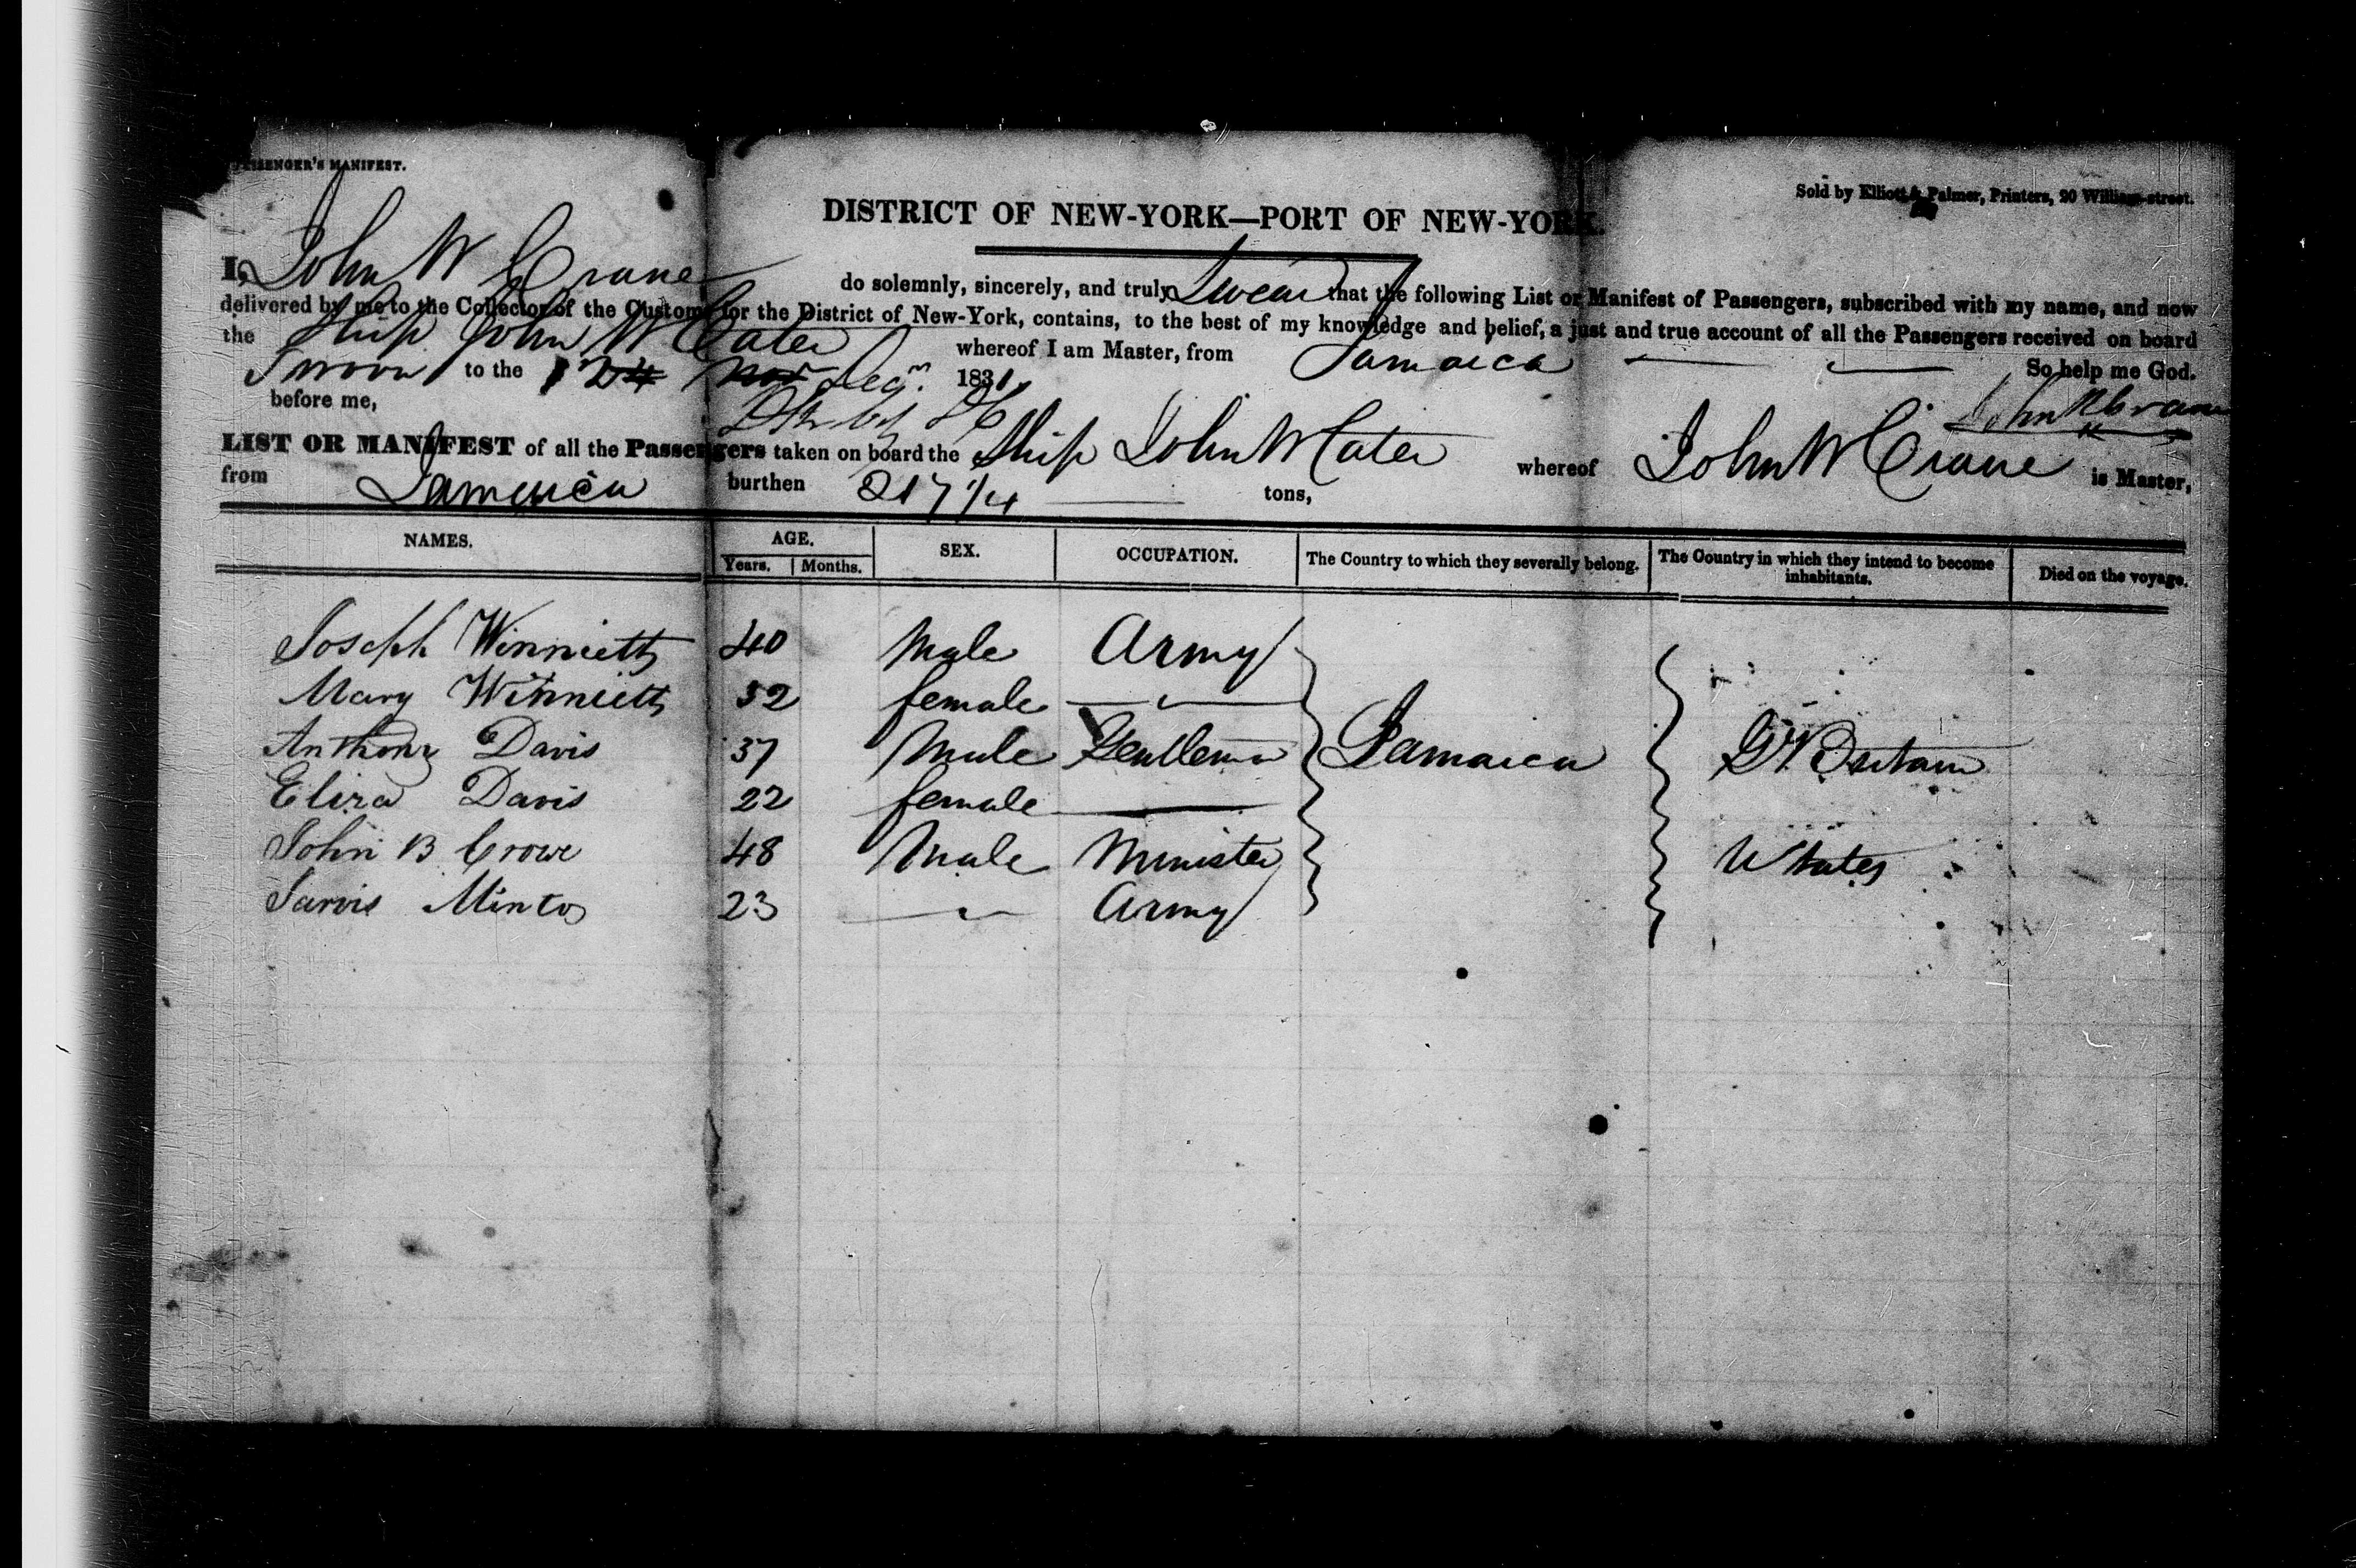 PASSENGER'S MANIFEST.
Sold by Elliott & Palmer, Printers, 20 William-street.
DISTRICT OF NEW-YORK—PORT OF NEW-YORK.
I, John W Crane do solemnly, sincerely, and truly Swear that the following List or Manifest of Passengers, subscribed with my name, and now
delivered by me to the Collector of the Customs for the District of New-York, contains, to the best of my knowledge and belief, a just and true account of all the Passengers received on board
the Ship John W Cater whereof I am Master, from Jamaica So help me God.
Sworn to the 1 24 Nov Decm. 1831. John W Crane
before me,
LIST OR MANIFEST of all the Passengers taken on board the Ship John W Cater whereof John W Crane is Master,
from Jamaica burthen 217 1/4 tons,
NAMES. AGE. SEX. OCCUPATION. The Country to which they severally belong. The Country in which they intend to become inhabitants. Died on the voyage.
Years. Months.
Joseph Winniett 40 Male Army
Mary Winniett 32 female
Anthony Davis 37 Male Gentleman Jamaica Gt Britain
Eliza Davis 22 female
John B Crowe 48 Male Minister U States
Jarvis Minto 23 Army